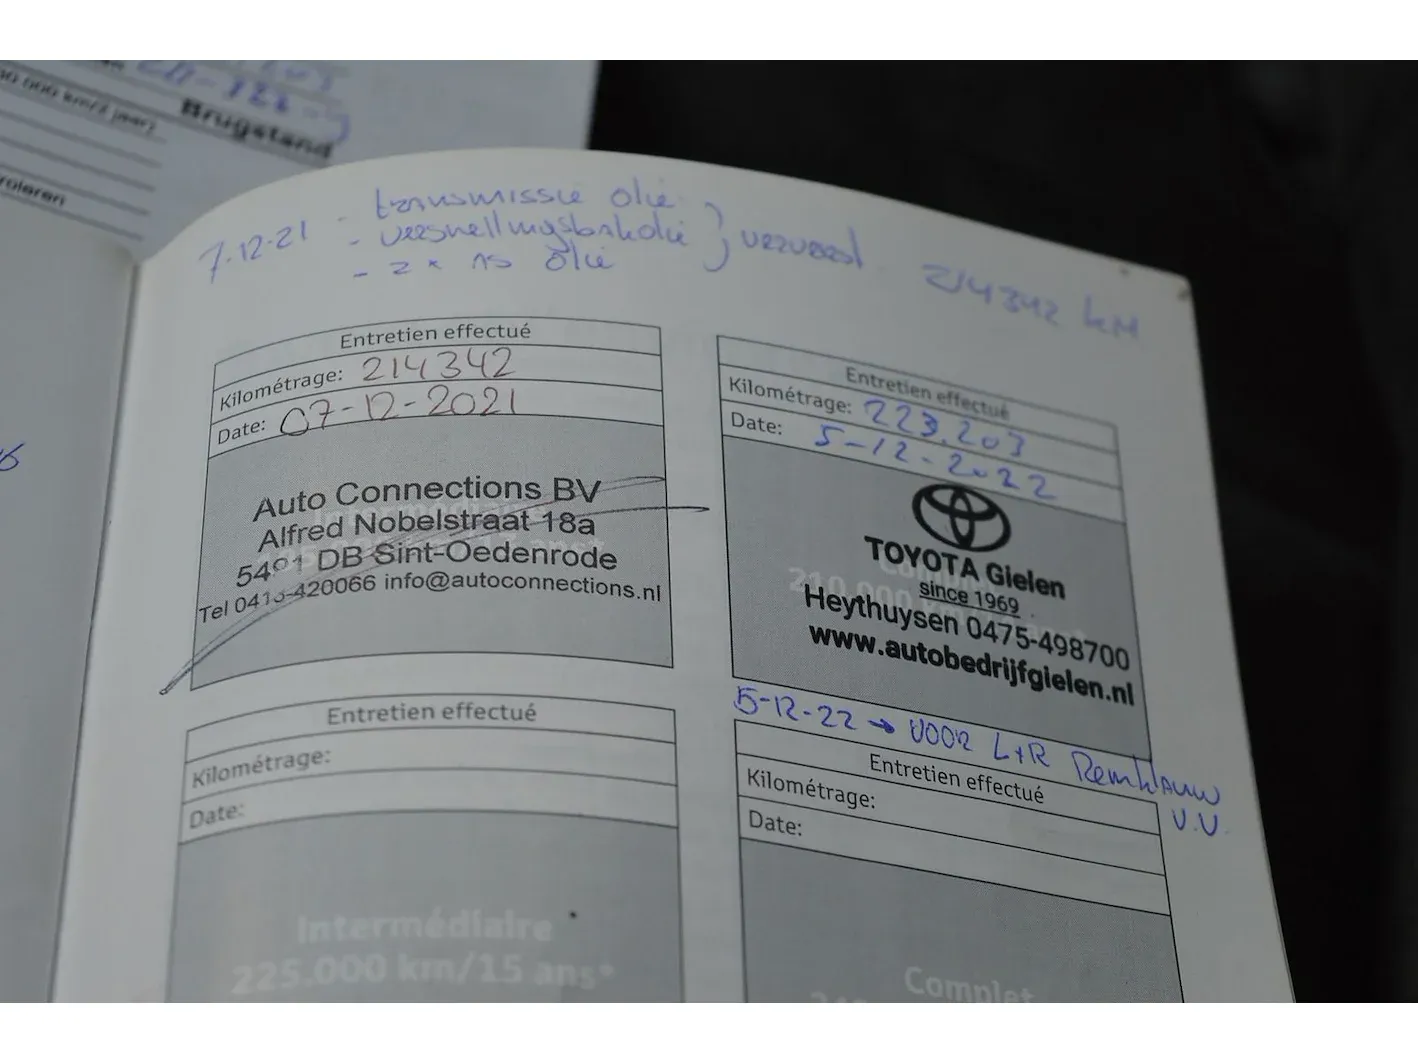 Brugstand
7-12-21 - transmissie olie
- versnellingsbakolie } ververst 214342 KM
- 2x as olie
Entretien effectué
Kilométrage: 214342
Date: 07-12-2021
Auto Connections BV
Alfred Nobelstraat 18a
5491 DB Sint-Oedenrode
Tel 0413-420066 info@autoconnections.nl
Entretien effectué
Kilométrage: 223.203
Date: 5-12-2022
TOYOTA Gielen
since 1969
Heythuysen 0475-498700
www.autobedrijfgielen.nl
5-12-22 → VOOR L+R Remklauw
V.V.
Entretien effectué
Kilométrage:
Date:
Intermédiaire
225.000 km/15 ans*
Entretien effectué
Kilométrage:
Date:
Complet